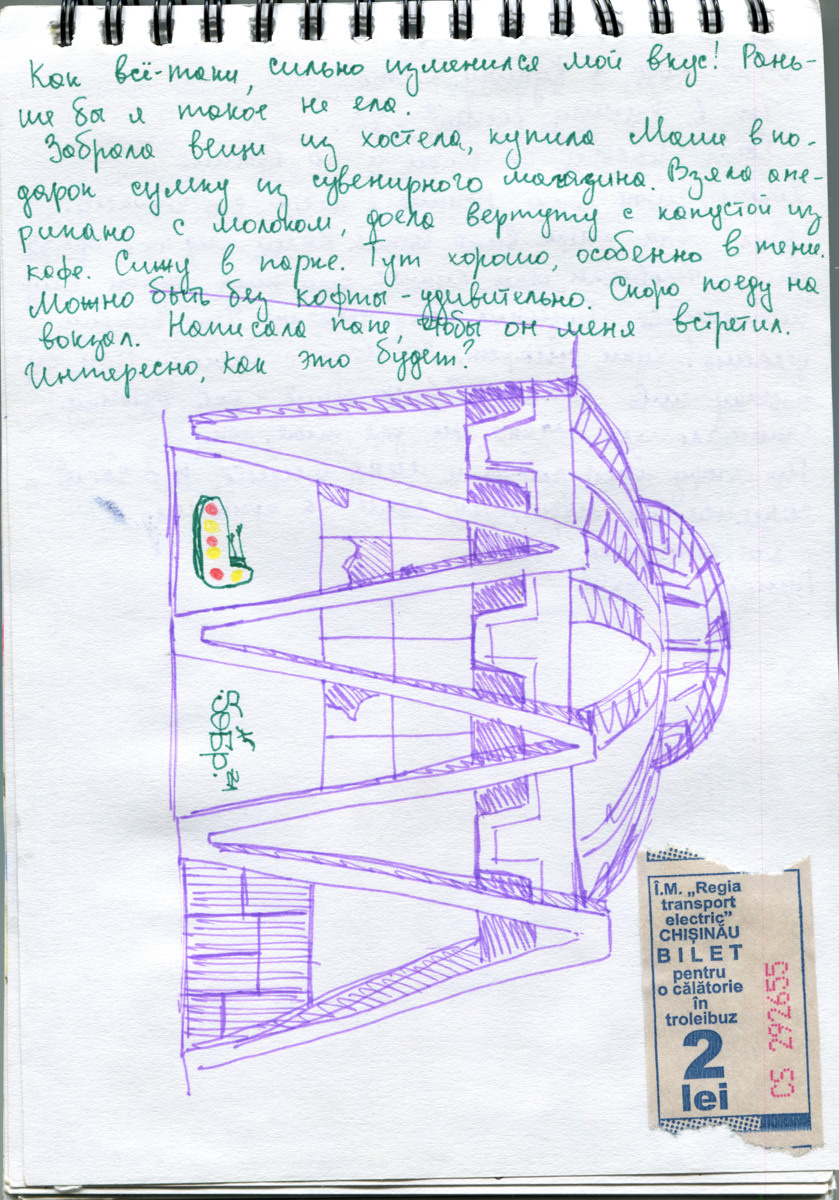 Как всё-таки, сильно изменился мой вкус! Рань-
ше бы я такое не ела.
Забрала вещи из хостела, купила Маше в по-
дарок сумку из сувенирного магазина. Взяла аме-
рикано с молоком, доела вертуту с капустой из
кафе. Сижу в парке. Тут хорошо, особенно в тени.
Можно быть без кофты - удивительно. Скоро поеду на
вокзал. Написала папе, чтобы он меня встретил.
Интересно, как это будет?
Î.M. „Regia
transport
electric”
CHIȘINĂU
BILET
pentru
o călătorie
în
troleibuz
2
lei
CS 292655